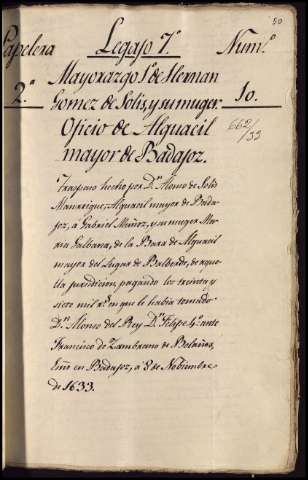 50
Papelera Legajo 7.º Num.º
2.ª Mayorazgo 1.º de Hernan 10.
Gomez de Solis, y su muger
Oficio de Alguacil
mayor de Badajoz.
662/33
Traspaso hecho por D.n Alonso de Solis
Manrrique, Alguacil mayor de Bada-
joz, a Gabriel Muñoz, y su muger Ma-
ria Galbana, de la Bara de Alguacil
mayor del Lugar de Balverde, de aque-
lla jurisdicion, pagando los treinta y
siete mil r.s en que le habia
D.n Alonso del Rey D.n Felipe 4.º ante
Francisco de Zambrano de Bolaños,
Esno en Badajoz, a 8 de Nobiembre
de 1633.